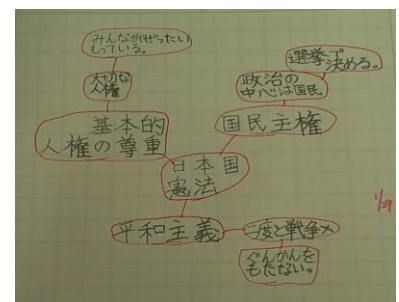 みんながぜったい
もっている。
大切な
人権
基本的
人権の尊重
選挙で
決める。
政治の
中心は国民
国民主権
日本国
憲法
平和主義
二度と戦争×
ぐんかんを
もたない。
1/29